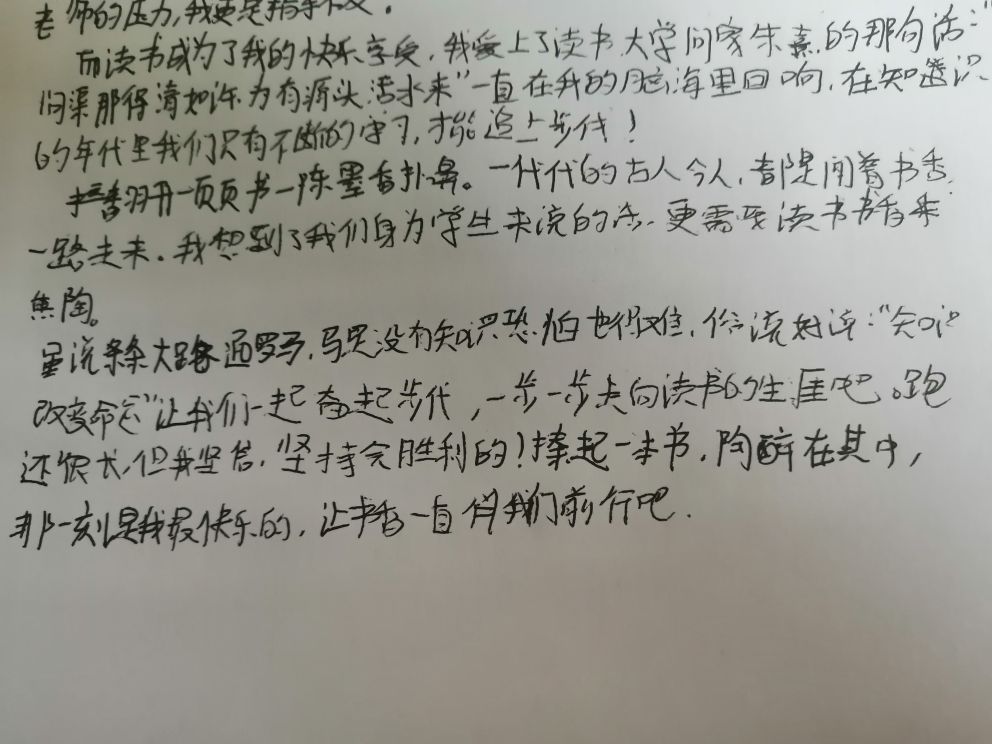 老师的压力,我更是措手不及。
而读书成为了我的快乐享受,我爱上了读书大学问家朱熹的那句话:"
问渠那得清如许,为有源头活水来"一直在我的脑海里回响,在知识
的年代里我们只有不断的学习,才能追上步伐!
翻开一页页书一阵墨香扑鼻。一代代的古人今人,都是闻着书香
一路走来。我想到了我们身为学生来说的话,更需要读书书香来
熏陶。
虽说条条大路通罗马,马是没有知识恐怕也很难,俗话好说:"知识
改变命运"让我们一起奋起步代,一步一步走向读书的生涯吧。跑
还很长,但我坚信,坚持会胜利的!捧起一本书,陶醉在其中,
那一刻是我最快乐的,让书香一直伴我们前行吧.